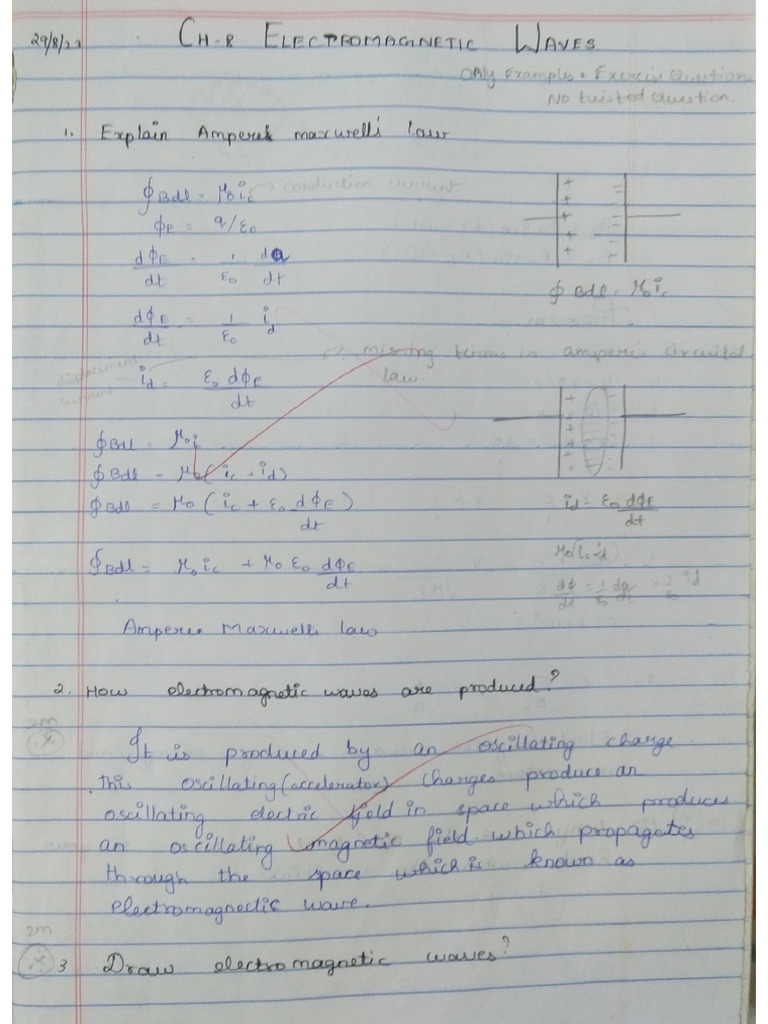 29/8/23
CH-8 ELECTROMAGINETIC WAVES
Only examples & Exercise Question
No twisted Question.
1. Explain Ampere's maxwell's law
∮Bdl = μ0 ic → conduction current
ϕE = q/ε0
dϕE/dt = 1/ε0 dq/dt
dϕE/dt = 1/ε0 id
∮ Bdl = μ0 ic
missing terms in amperes circuital law.
displacement current
id = ε0 dϕE/dt
∮Bdl = μ0 i
∮Bdl = μ0 (ic + id)
∮Bdl = μ0 (ic + ε0 dϕE/dt)
∮Bdl = μ0 ic + μ0 ε0 dϕE/dt
id = ε0 dϕE/dt
μ0(ic+id)
dϕ/dt = 1/ε0 dq/dt = 1/ε0 id
Amperes Maxwells law
2. How electromagnetic waves are produced?
2m
It is produced by an oscillating charge.
this oscillating (accelerator) charges produce an
oscillating electric field in space which produces
an oscillating magnetic field which propagates
through the space which is known as
electromagnectic wave.
2m
3 Draw electromagnetic waves?